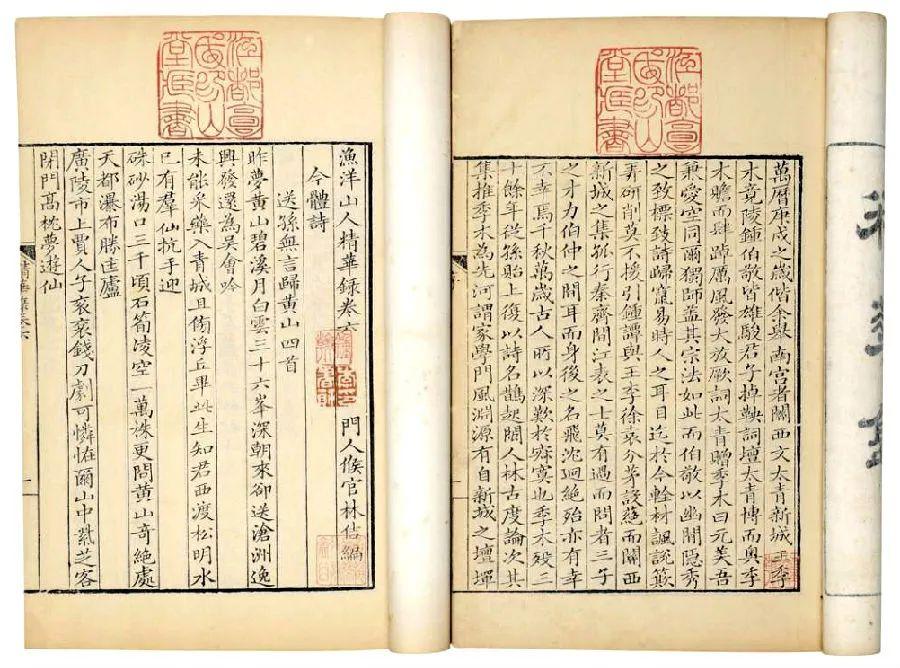 萬曆庚戌之歲偕余舉南宮者關西文太青新城王季
木竟陵鍾伯敬皆雄駿君子掉鞅詞壇太青博而奧季
木贍而肆踔厲風發大放厥詞太青贈季木曰元美吾
兼愛空同爾獨師蓋其宗法如此而伯敬以幽閒隱秀
之致標致詩歸竄易時人之耳目迄於今輇材諷說簸
弄研削莫不援引鍾譚與王李徐袁分茅設蕝而關西
新城之集孤行秦齊間江表之士莫有過而問者三子
之才力伯仲之間耳而身後之名飛沈迥絕殆亦有幸
不幸焉千秋萬歲古人所以深歎於寂寞也季木歿三
十餘年從孫貽上復以詩名鵲起閩人林古度論次其
集推季木為先河謂家學門風淵源有自新城之壇墠
漁洋山人精華錄卷六 門人侯官林佶編
今體詩
送孫無言歸黃山四首
昨夢黃山碧溪月白雲三十六峯深朝來卻送滄洲逸
興發還為吳會吟
未能采藥入青城且傍浮丘畢此生知君西渡松明水
已有羣仙抗手迎
硃砂湯口三千頃石筍淩空一萬株更問黃山奇絕處
天都瀑布勝匡廬
廣陵市上賈人子衮衮錢刀劇可憐怪爾山中紫芝客
閉門高枕夢遊仙